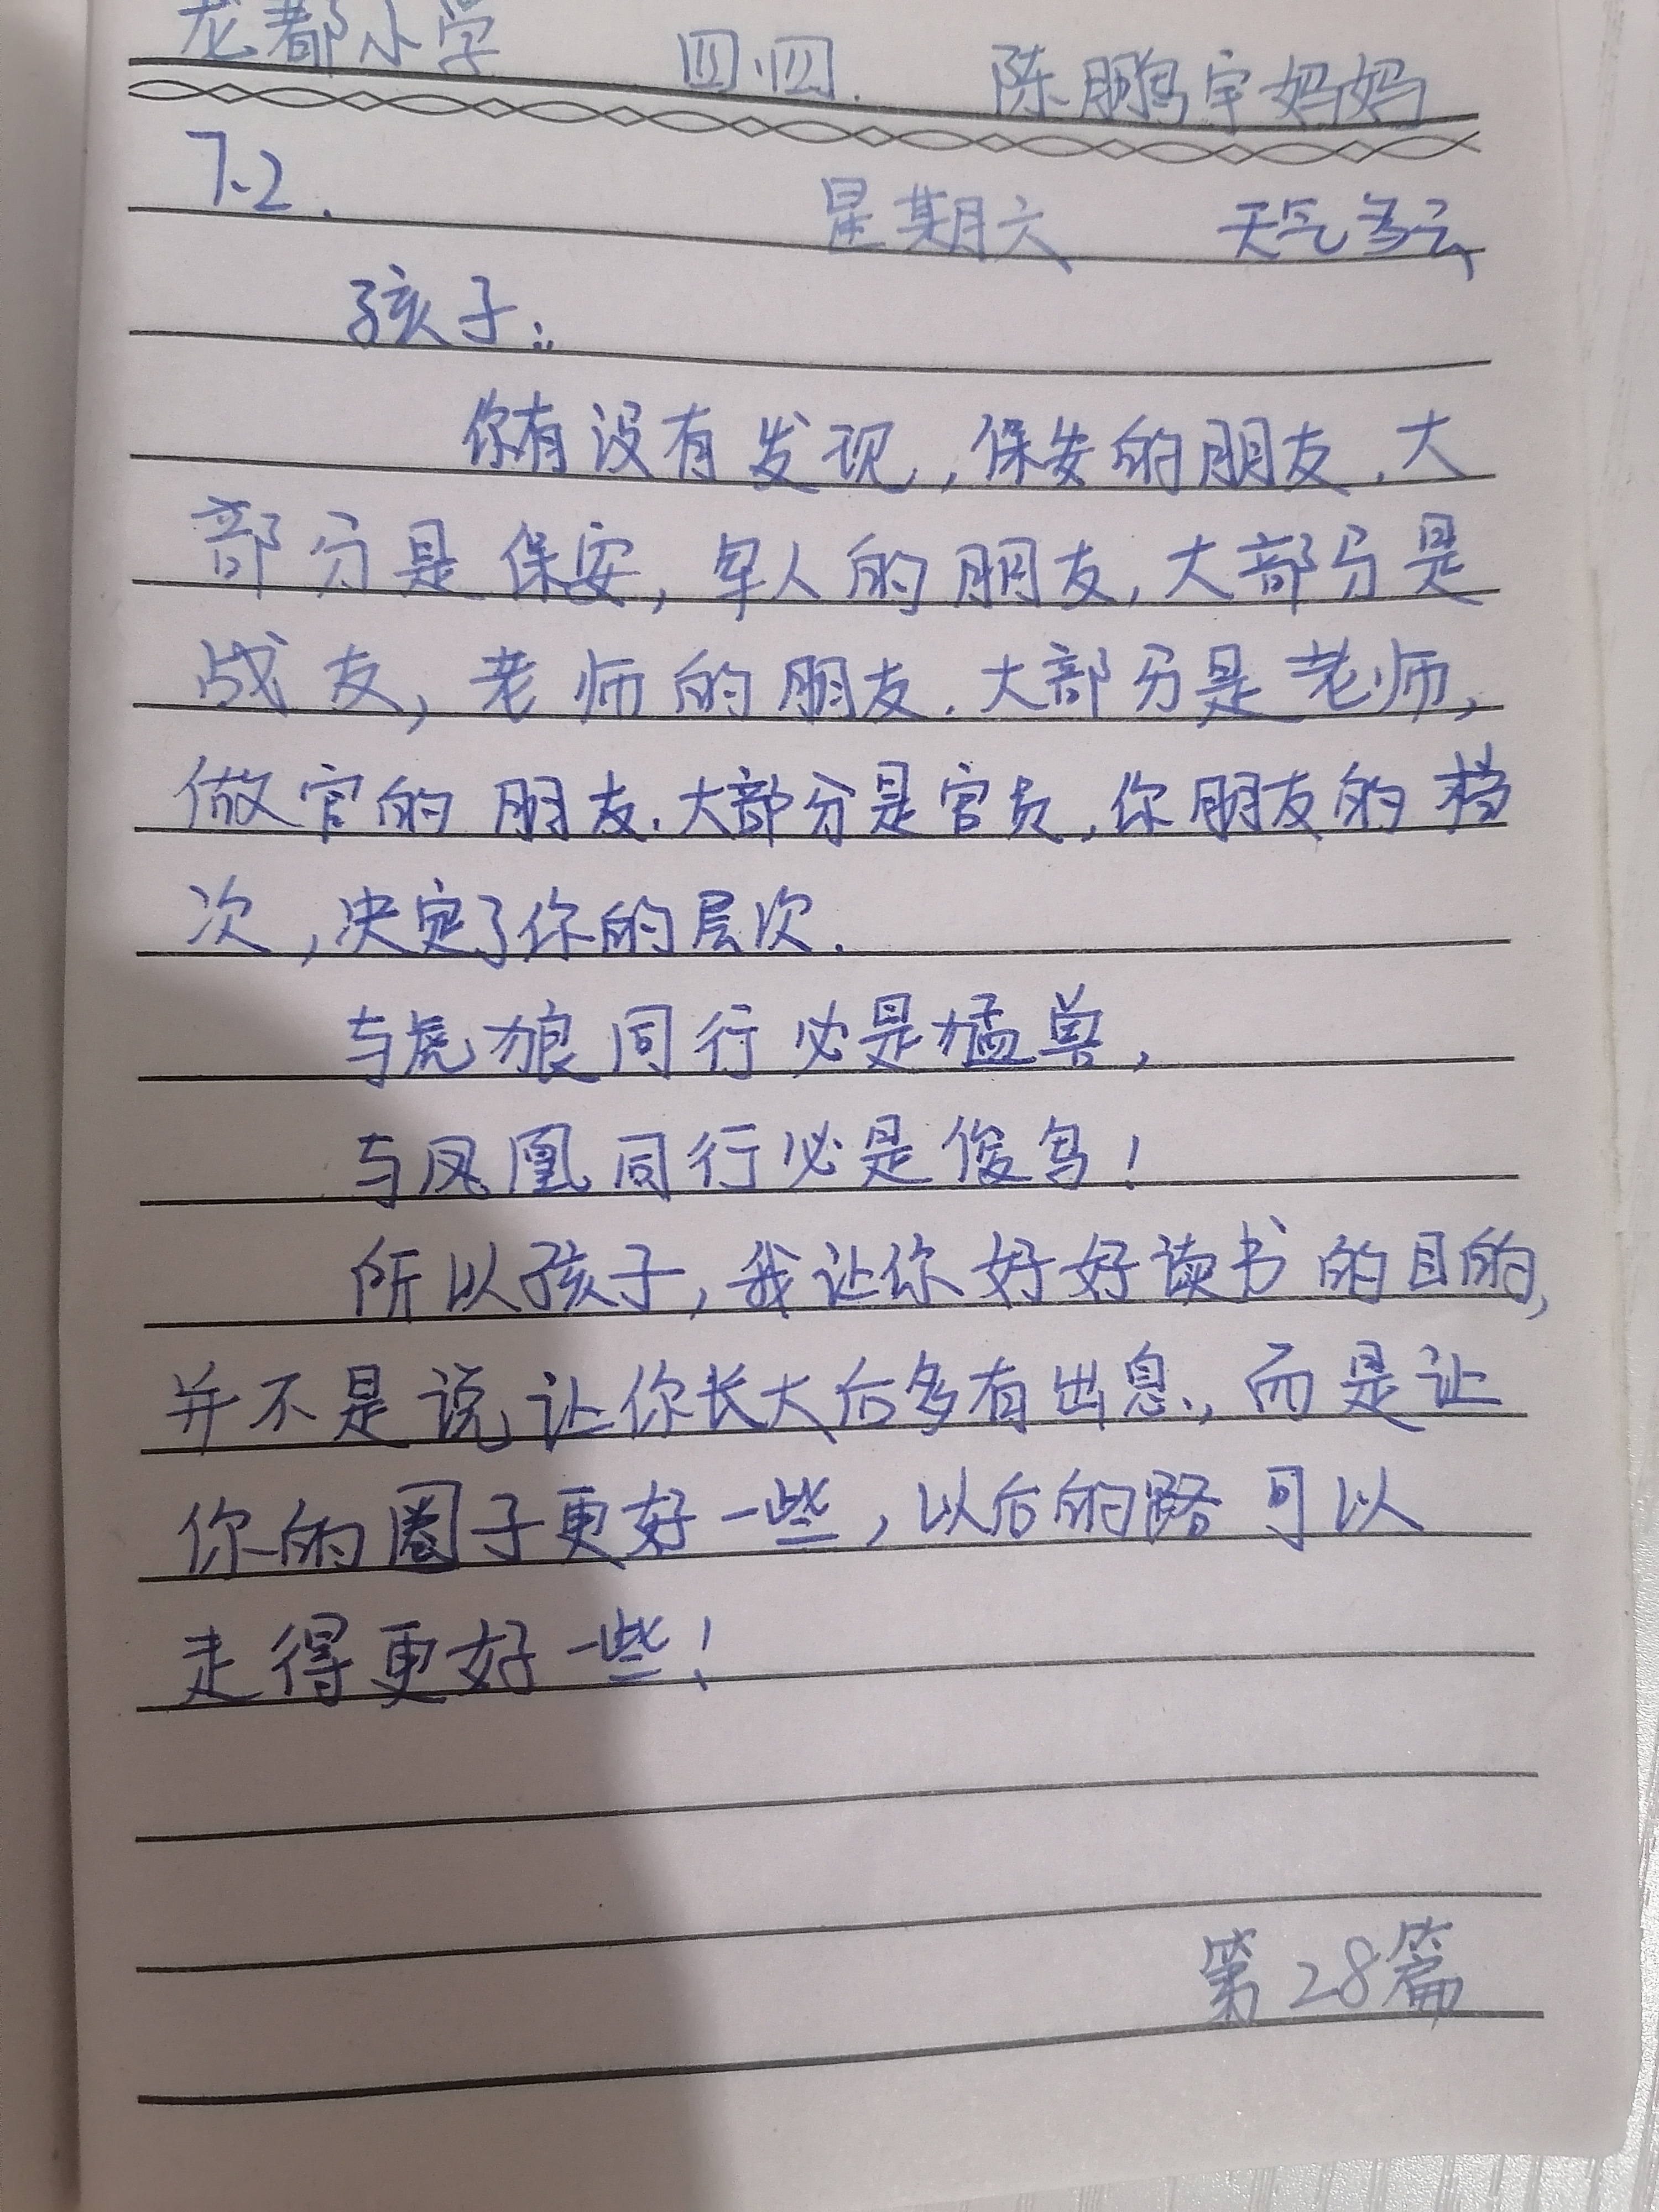 龙都小学 四.四. 陈鹏宇妈妈
7.2. 星期六 天气多云
孩子:
你有没有发现,保安的朋友.大
部分是保安,军人的朋友,大部分是
战友,老师的朋友.大部分是老师,
做官的朋友.大部分是官员,你朋友的档
次,决定了你的层次.
与虎狼同行必是猛兽,
与凤凰同行必是俊鸟!
所以孩子,我让你好好读书的目的,
并不是说让你长大后多有出息,而是让
你的圈子更好一些,以后的路可以
走得更好一些!
第28篇